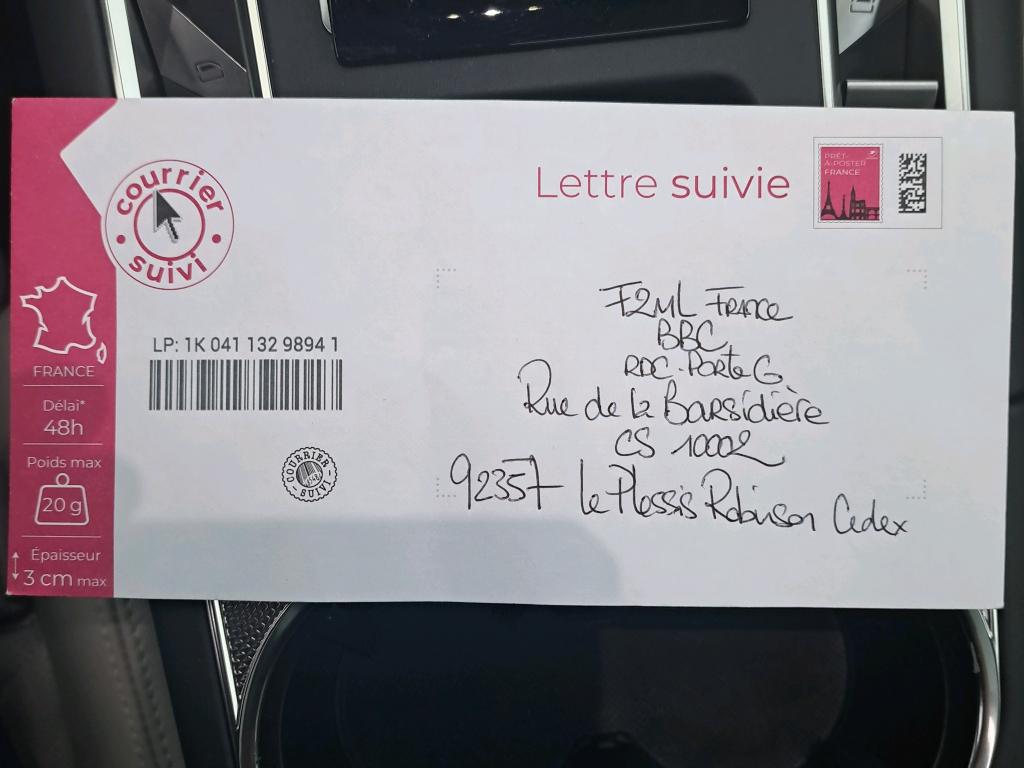 courrier
suivi
Lettre suivie
PRÊT-
À-POSTER
FRANCE
F2ML France
BBC
RDC. Porte G
Rue de la Barsidière
CS 10002
92357 Le Plessis Robinson Cedex
LP: 1K 041 132 9894 1
COURRIER
SUIVI
FRANCE
Délai*
48h
Poids max
20 g
Épaisseur
3 cm max